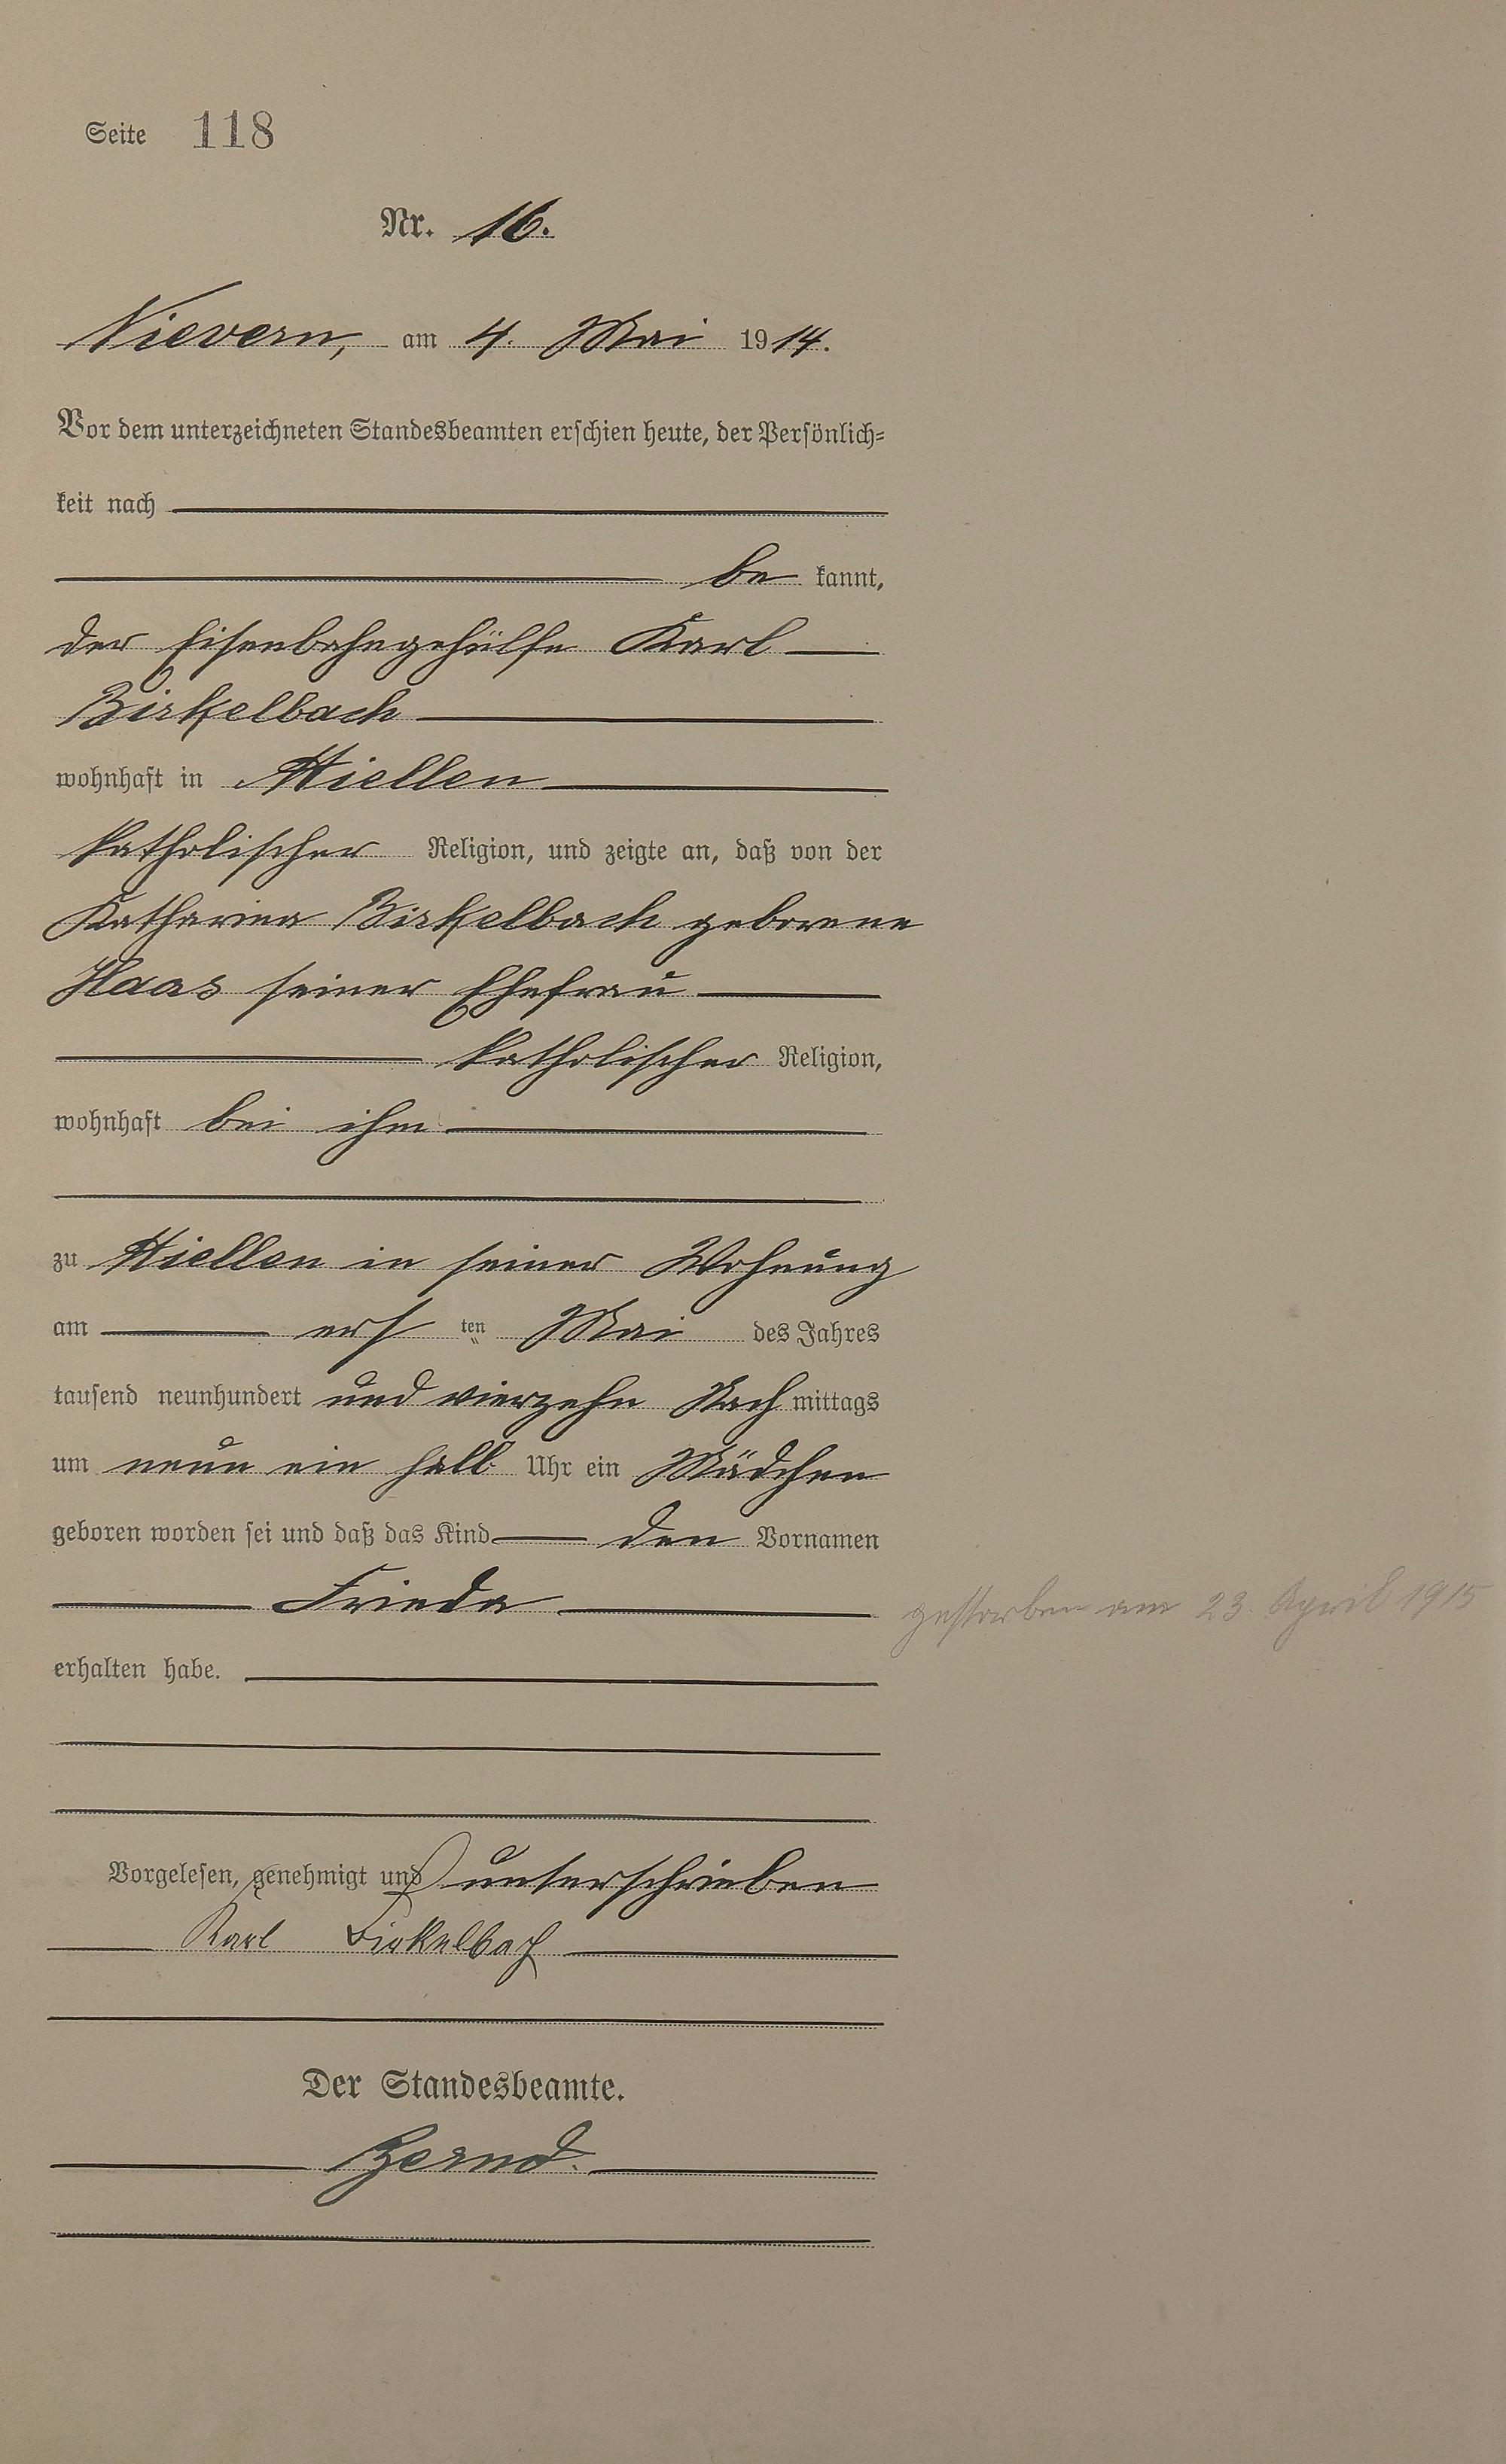 Seite 118
Nr. 16.
Nievern, am 4. Mai 1914.
Vor dem unterzeichneten Standesbeamten erschien heute, der Persönlich=
keit nach
be kannt,
der Eisenbahngehülfe Karl
Birkelbach
wohnhaft in Miellen
katholischer Religion, und zeigte an, daß von der
Katharina Birkelbach geborene
Haas seiner Ehefrau
katholischer Religion,
wohnhaft bei ihm
zu Miellen in seiner Wohnung
am ersten Mai des Jahres
tausend neunhundert und vierzehn Nachmittags
um neun ein halb Uhr ein Mädchen
geboren worden sei und daß das Kind den Vornamen
Frieda
gestorben am 23. April 1915
erhalten habe.
Vorgelesen, genehmigt und unterschrieben
Karl Birkelbach
Der Standesbeamte.